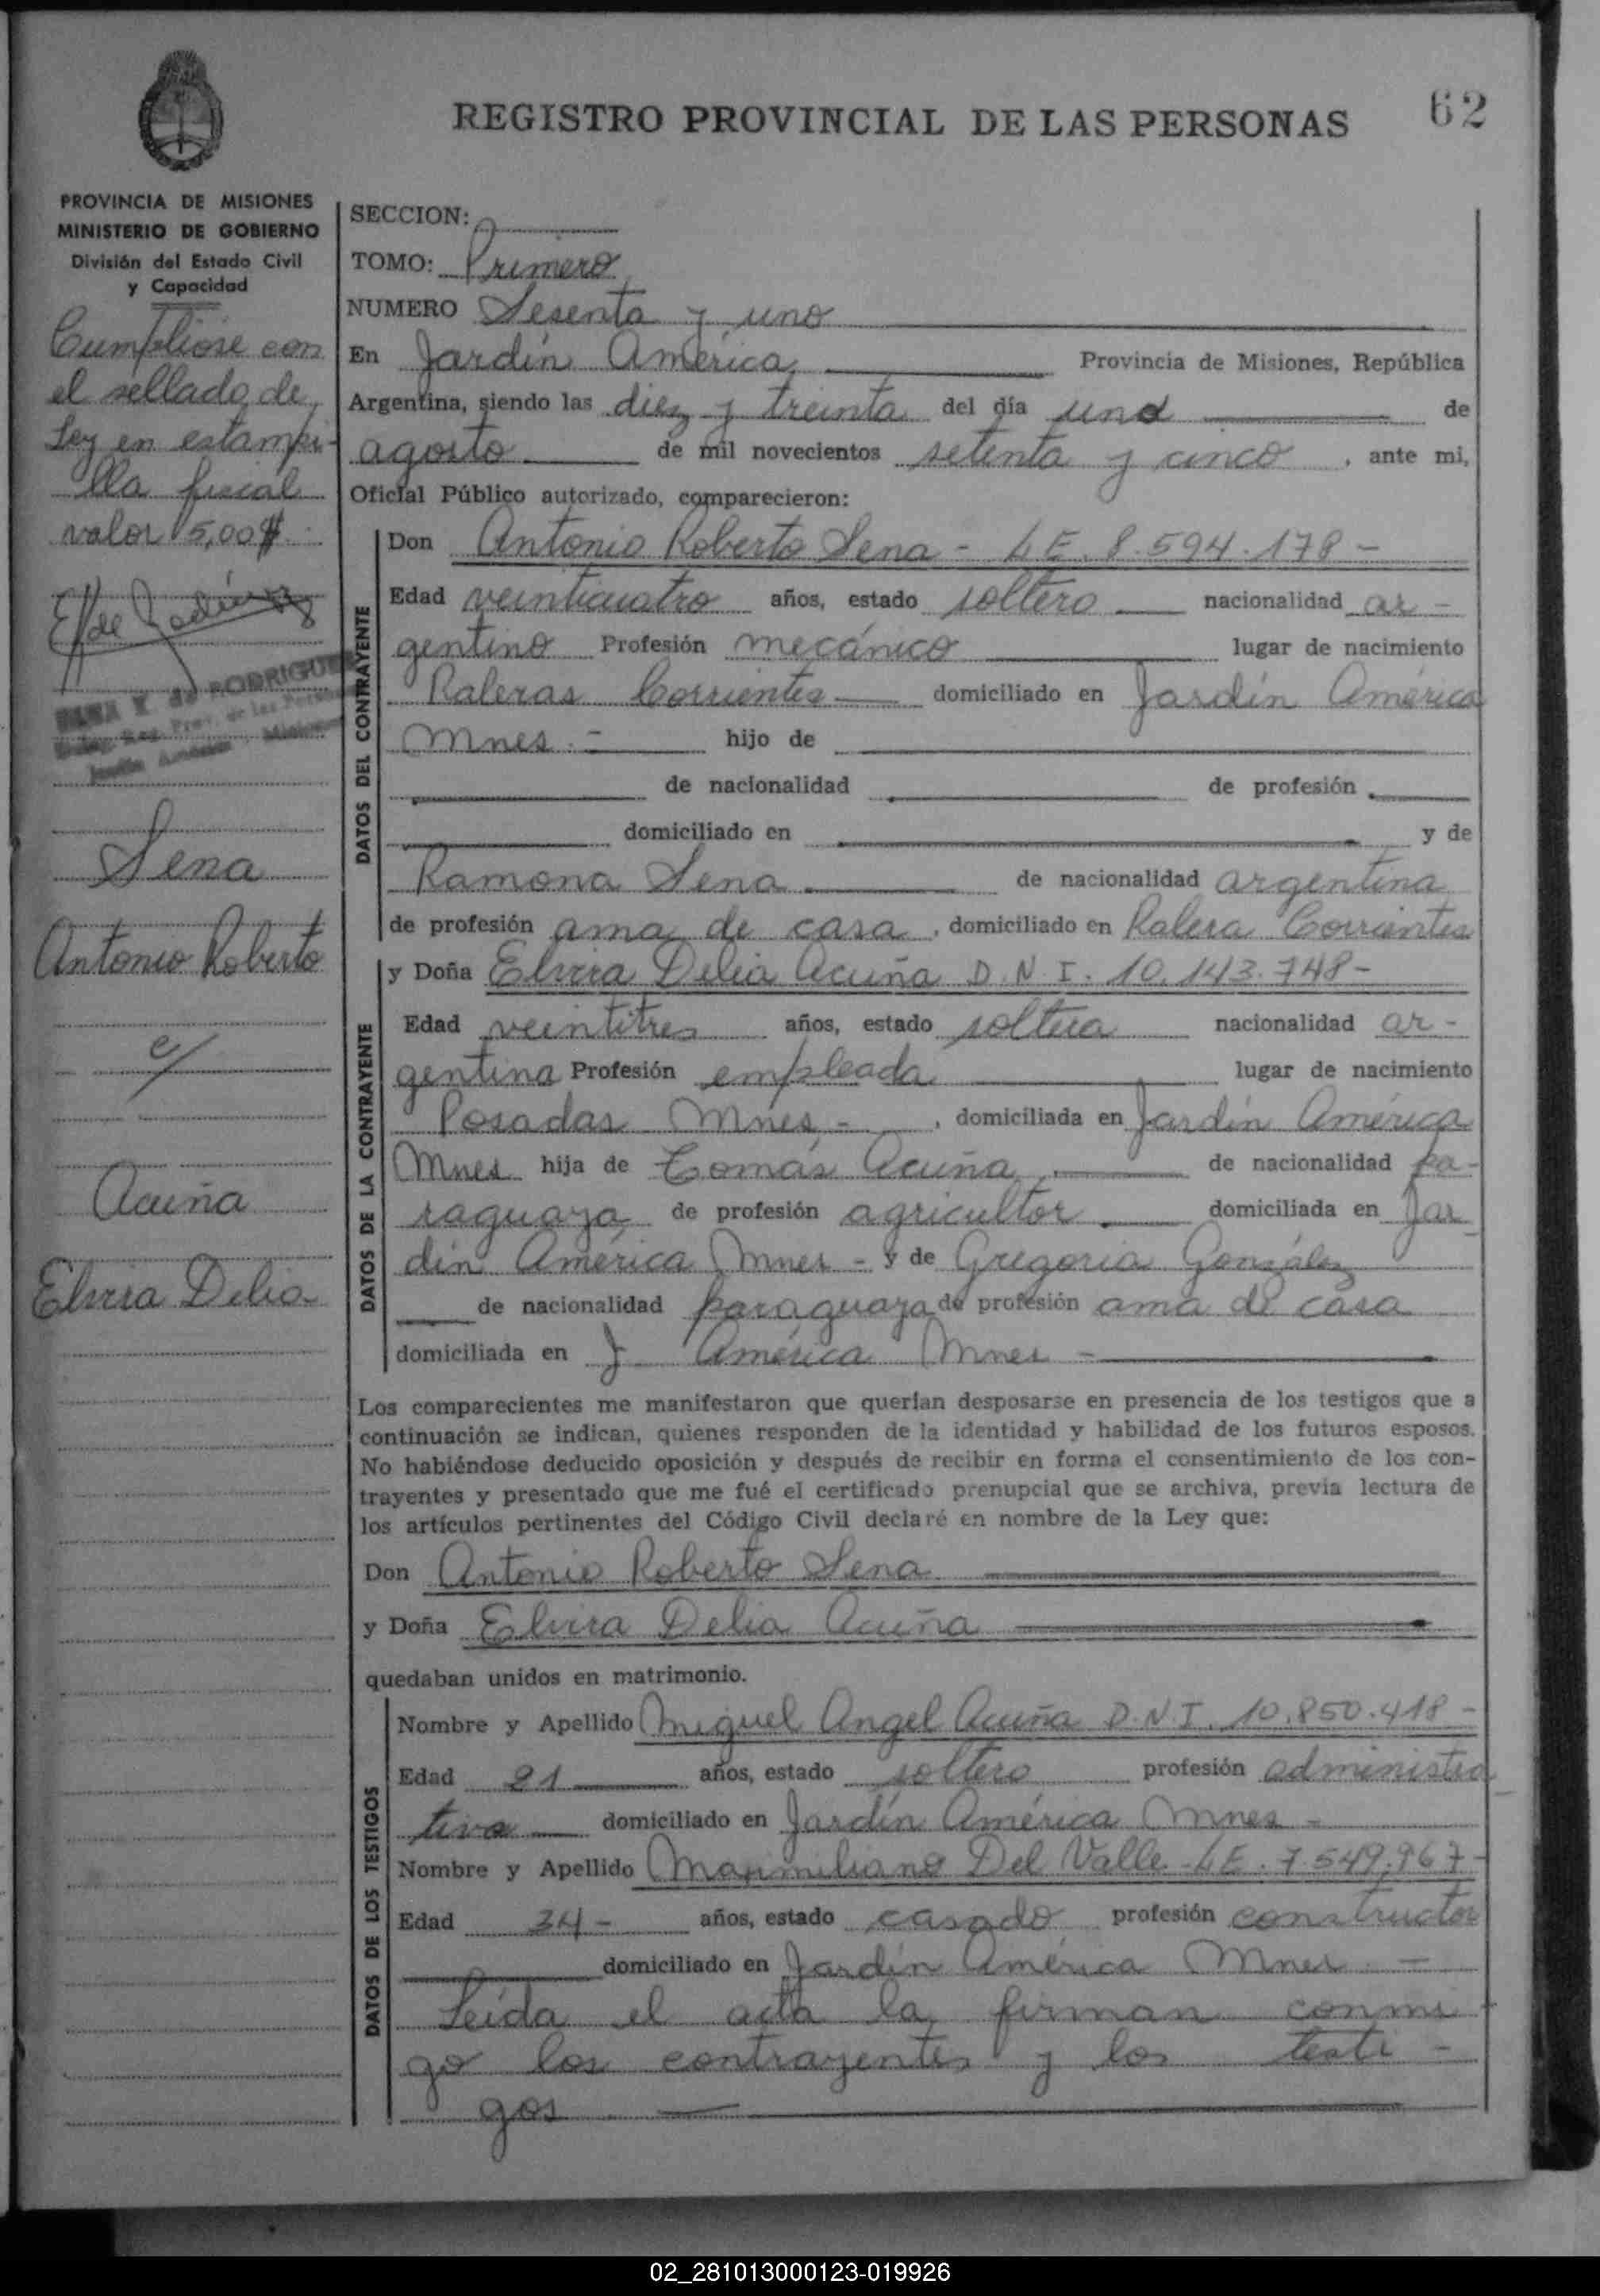 62
REGISTRO PROVINCIAL DE LAS PERSONAS
PROVINCIA DE MISIONES
MINISTERIO DE GOBIERNO
División del Estado Civil
y Capacidad
Cumpliose con
el sellado de
Ley en estampi-
lla fiscal
valor 5,00 $
de RODRIGUEZ
Sena
Antonio Roberto
c/
Acuña
Elvira Delia
SECCION:
TOMO: Primero
NUMERO Sesenta y uno
En Jardín América Provincia de Misiones, República
Argentina, siendo las diez y treinta del día uno de
agosto de mil novecientos setenta y cinco, ante mi,
Oficial Público autorizado, comparecieron:
DATOS DEL CONTRAYENTE
Don Antonio Roberto Sena - LE. 8.594.178 -
Edad veinticuatro años, estado soltero nacionalidad ar-
gentino Profesión mecánico lugar de nacimiento
Raleras Corrientes domiciliado en Jardín América
Mnes. - hijo de
de nacionalidad de profesión
domiciliado en y de
Ramona Sena de nacionalidad argentina
de profesión ama de casa, domiciliado en Ralera Corrientes
DATOS DE LA CONTRAYENTE
y Doña Elvira Delia Acuña D.N.I. 10.143.748-
Edad veintitres años, estado soltera nacionalidad ar-
gentina Profesión empleada lugar de nacimiento
Posadas Mnes. -, domiciliada en Jardín América
Mnes hija de Tomás Acuña de nacionalidad pa-
raguaya de profesión agricultor domiciliada en Jar
dín América Mnes - y de Gregoria González
de nacionalidad paraguaya de profesión ama de casa
domiciliada en J. América Mnes -
Los comparecientes me manifestaron que querían desposarse en presencia de los testigos que a
continuación se indican, quienes responden de la identidad y habilidad de los futuros esposos.
No habiéndose deducido oposición y después de recibir en forma el consentimiento de los con-
trayentes y presentado que me fué el certificado prenupcial que se archiva, previa lectura de
los artículos pertinentes del Código Civil declaré en nombre de la Ley que:
Don Antonio Roberto Sena
y Doña Elvira Delia Acuña
quedaban unidos en matrimonio.
DATOS DE LOS TESTIGOS
Nombre y Apellido Miguel Angel Acuña D.N.I. 10.850.418 -
Edad 21 años, estado soltero profesión administra
tivo domiciliado en Jardín América Mnes -
Nombre y Apellido Maximiliano Del Valle - LE. 7.549.967-
Edad 34 - años, estado casado profesión constructor
domiciliado en Jardín América Mnes. -
Leída el acta la firman conmi-
go los contrayentes y los testi-
gos
02_281013000123-019926